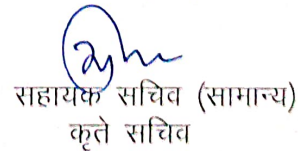 सहायक सचिव (सामान्य)
कृते सचिव